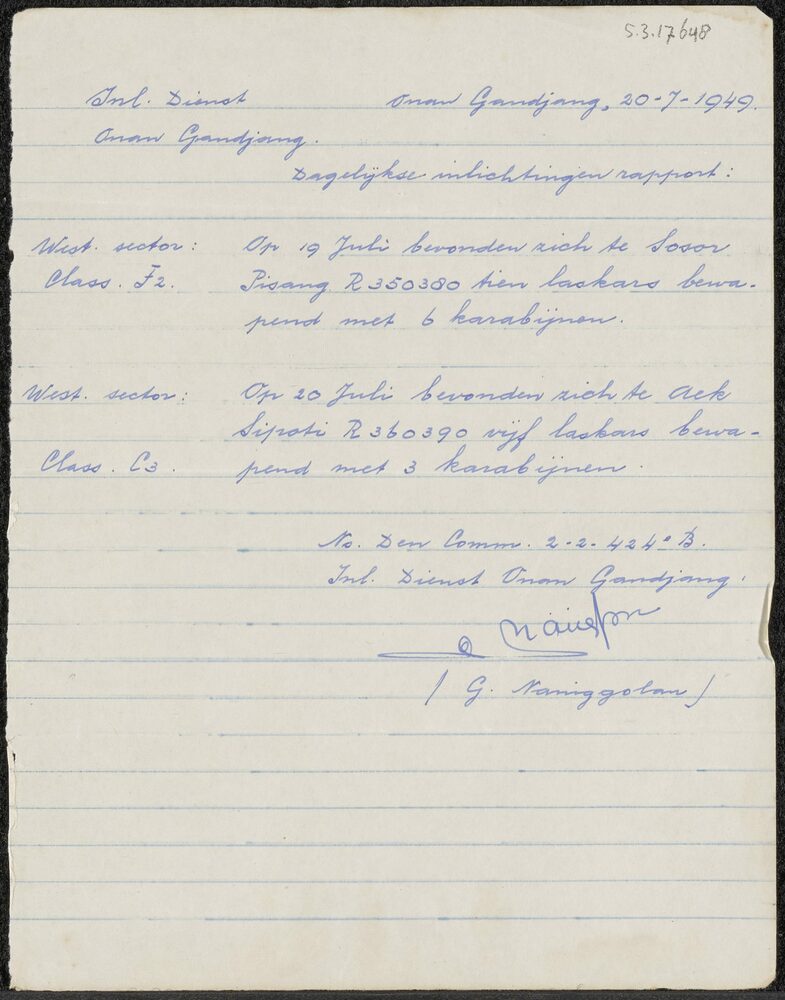 5.3.17648
Inl. Dienst Onan Gandjang, 20-7-1949.
Onan Gandjang.
Dagelijkse inlichtingen rapport:
West. sector: Op 19 Juli bevonden zich te Sosor
Class. F2. Pisang R350380 tien laskars bewa-
pend met 6 karabijnen.
West. sector: Op 20 Juli bevonden zich te Aek
Sipoti R360390 vijf laskars bewa-
Class. C3. pend met 3 karabijnen.
No. Den Comm. 2-2-424° B.
Inl. Dienst Onan Gandjang.
(G. Naniggolan)